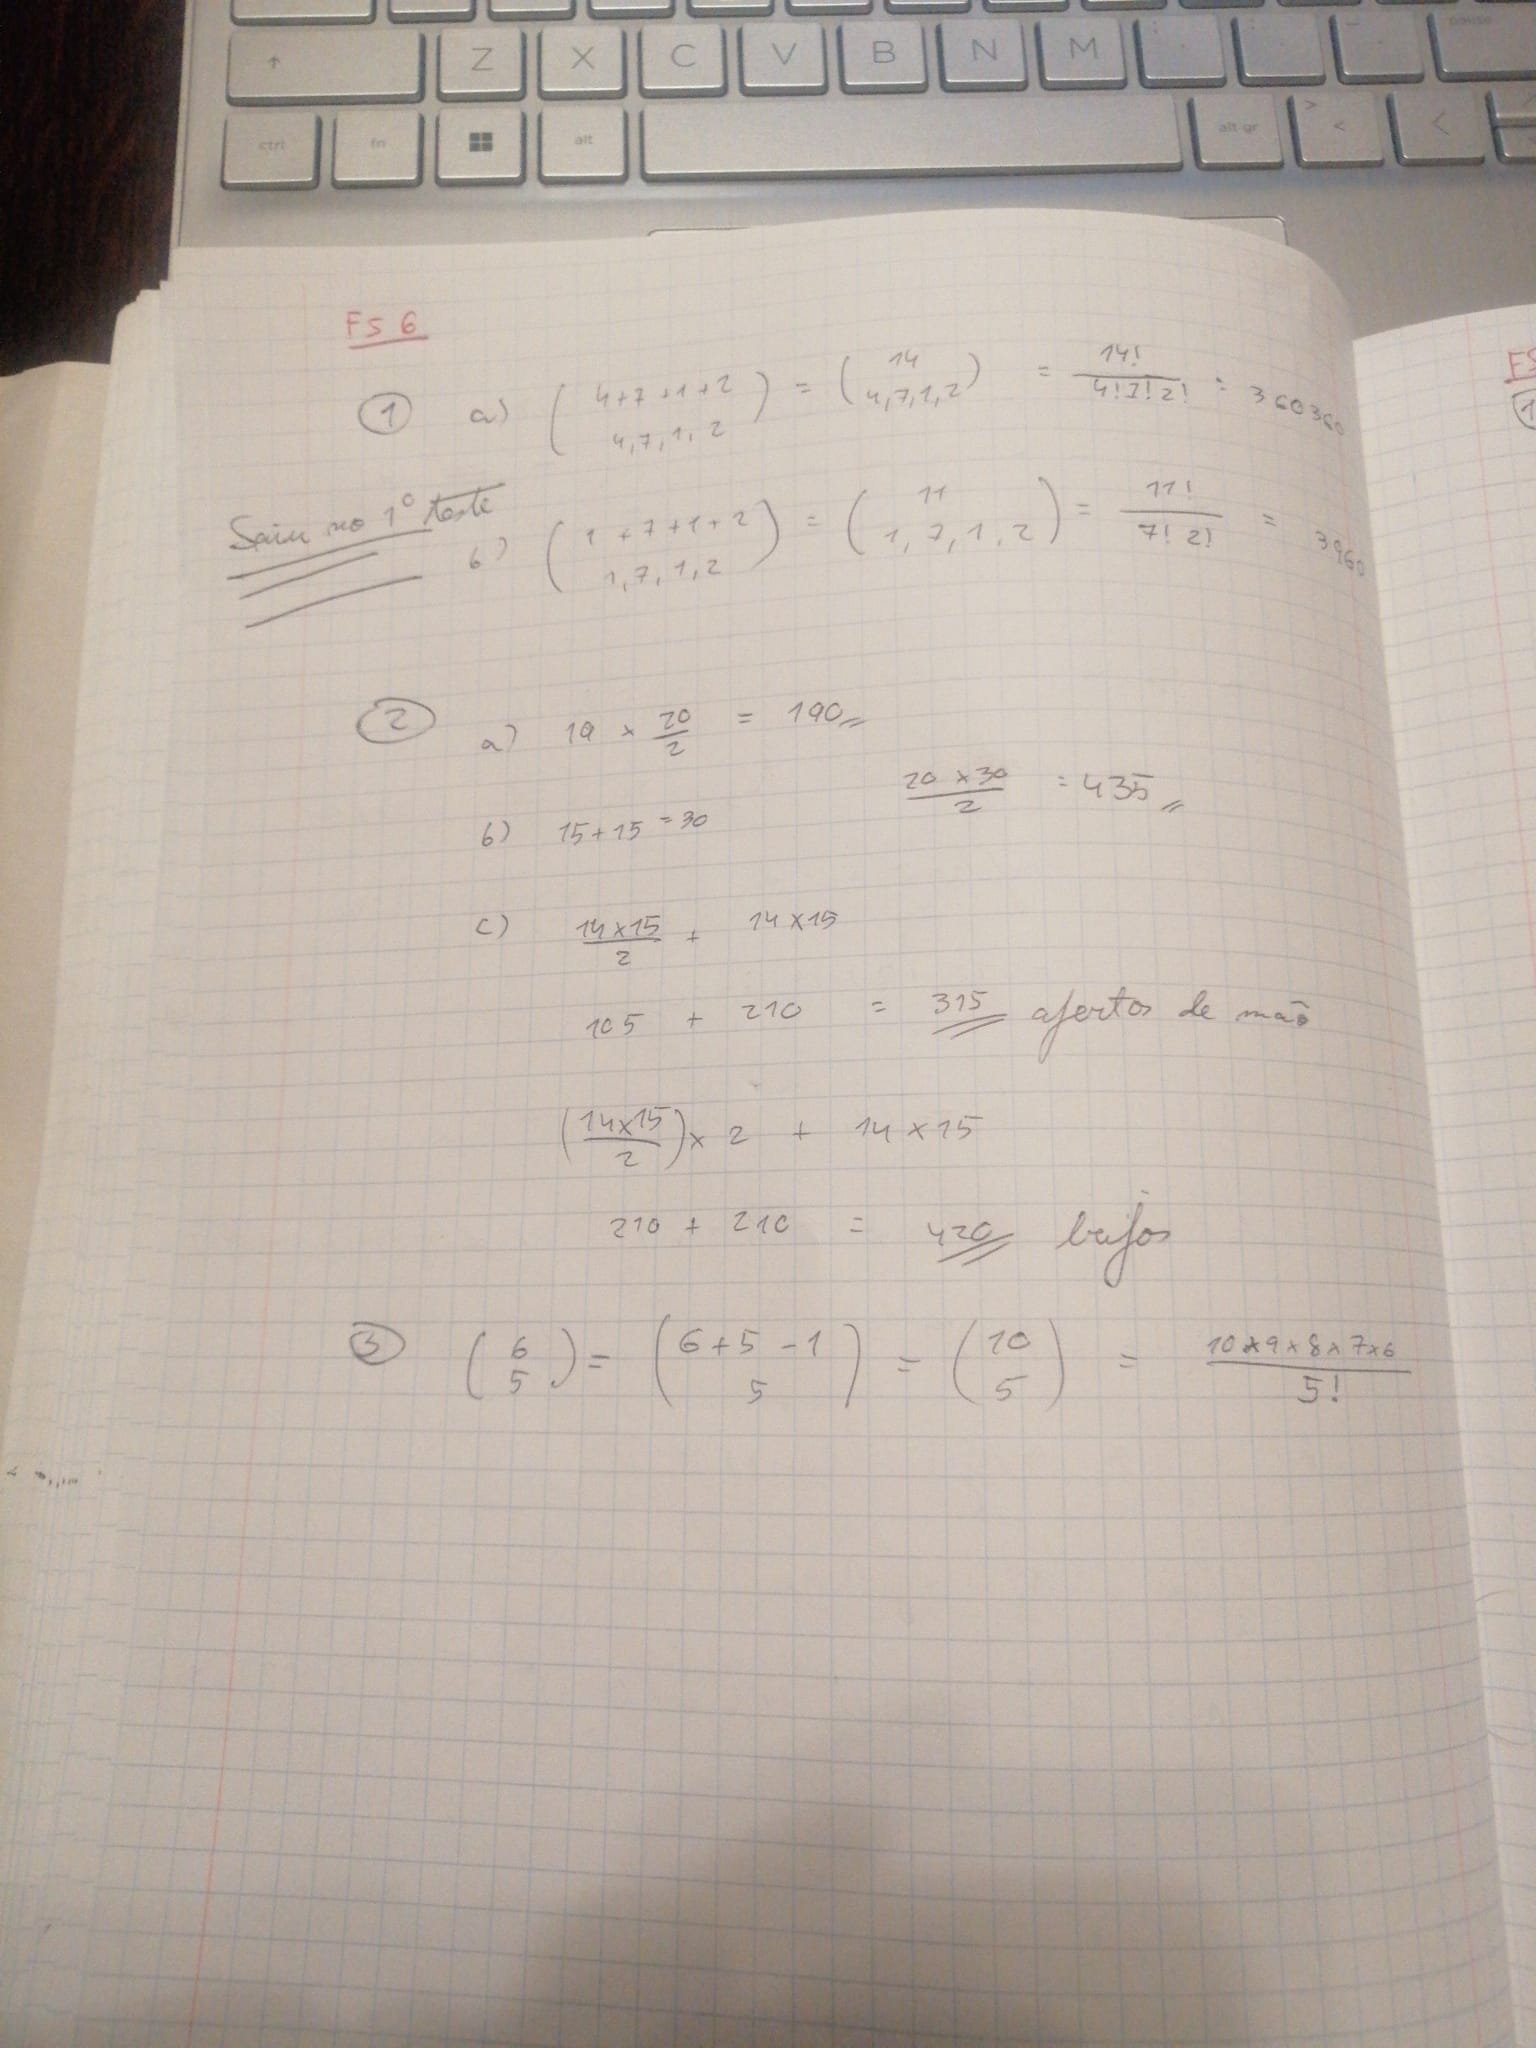 ↑ Z X C V B N M ; : - pause
ctrl fn alt alt gr > < <
FS 6
① a) ( 4+7+1+2 / 4,7,1,2 ) = ( 14 / 4,7,1,2 ) = 14! / 4!7!2! = 360360
Saiu no 1º teste
b) ( 1+7+1+2 / 1,7,1,2 ) = ( 11 / 1,7,1,2 ) = 11! / 7!2! = 3960
② a) 19 × 20/2 = 190
b) 15+15=30 20×30 / 2 = 435
c) 14×15 / 2 + 14×15
105 + 210 = 315 apertos de mão
(14×15 / 2) × 2 + 14×15
210 + 210 = 420 beijos
③ ( 6 / 5 ) = ( 6+5-1 / 5 ) = ( 10 / 5 ) = 10×9×8×7×6 / 5!